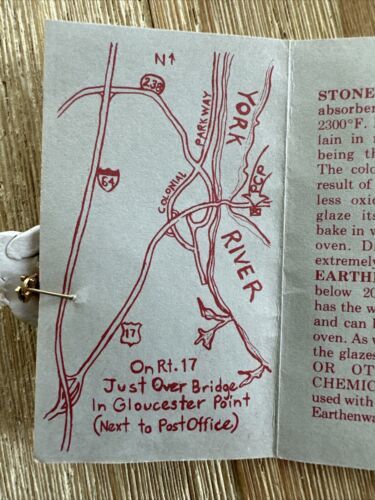 N↑
238
PARKWAY
COLONIAL
YORK
RIVER
PCP
64
17
On Rt. 17
Just Over Bridge
In Gloucester Point
(Next to Post Office)
STONE
absorbe
2300°F.
lain in
being th
The colo
result of
less oxid
glaze its
bake in w
oven. D
extremely
EARTH
below 20
has the w
and can b
oven. As w
the glazes
OR OT
CHEMIC
used with
Earthenwa